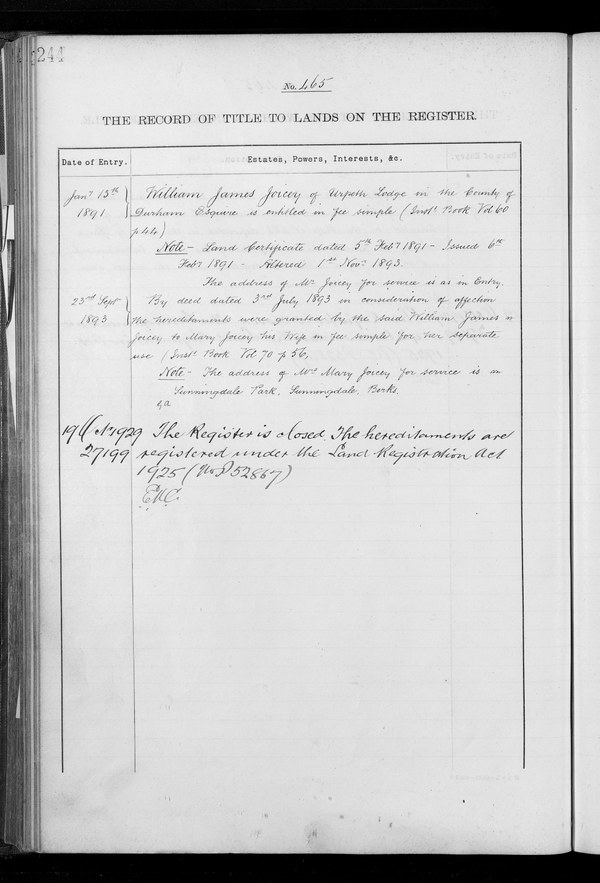 244
No. 465
THE RECORD OF TITLE TO LANDS ON THE REGISTER.
Date of Entry. Estates, Powers, Interests, &c.
Jany 15th 1891
William James Joicey of Urpeth Lodge in the County of
Durham Esquire is entitled in fee simple (Inst. Book Vol 60
p 44)
Note - Land Certificate dated 5th Feby 1891 - Issued 6th
Feby 1891 - Altered 1st Novr 1893.
The address of Mr Joicey for service is as in Entry.
23rd Sept 1893
By deed dated 3rd July 1893 in consideration of affection
the hereditaments were granted by the said William James
Joicey to Mary Joicey his Wife in fee simple for her separate
use (Inst. Book Vol 70 p 56,
Note - The address of Mrs Mary Joicey for service is
Sunningdale Park, Sunningdale, Berks.
19 Oct 1929
27199
The Register is closed. The hereditaments are
registered under the Land Registration Act
1925 (No P 52867)